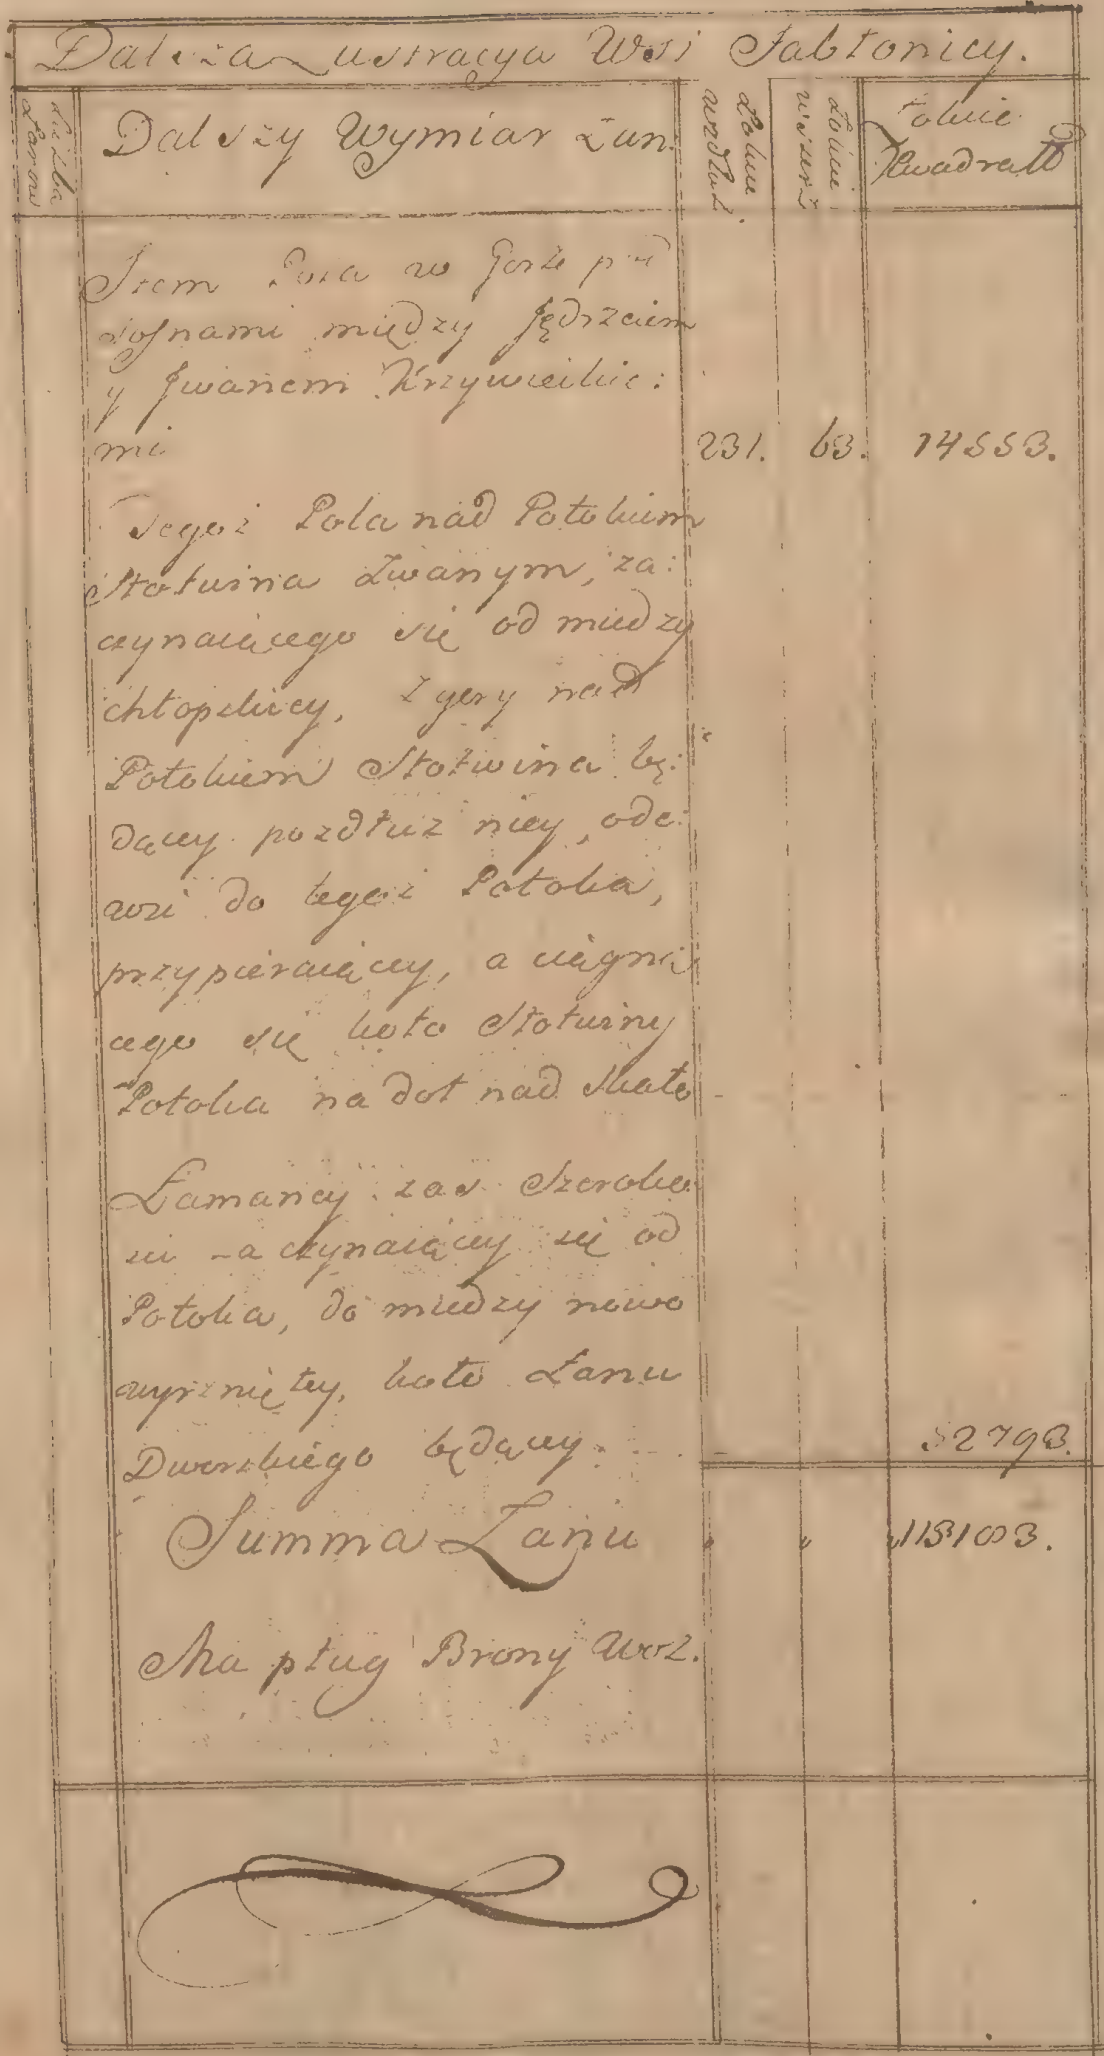 Dalsza Lustracya Wsi Jabłonicy.
Liczba Łanow
Dalszy Wymiar Łan:
Łokcie wzdłuż.
Łokcie wszerz
Łokcie Kwadratt
Item Pola w Gorze pod
sosnami między Jędrzeiem
y Jwanem Krzywieckie:
mi 231. 63. 14553.
Tegoż Pola nad Potokiem
Stotwina Zwanym, za:
czynaiącego się od miedzy
chłopskiey, z gory nad
Potokiem Stotwina bę:
dącey pozdłuż niey, ode:
wsi do tegoż Potoka,
przypieraiącey, a ciągną
cego się koło Stotwiny
Potoka na doł nad skałę
Łamaney zas Szeroko
sci zaczynaiącey się od
Potoka, do miedzy nowo
wyrznięty, koło Łanu
Dworskiego będącey. 52793.
Summa Łanu " " "113103.
Ma pług Brony Woz.